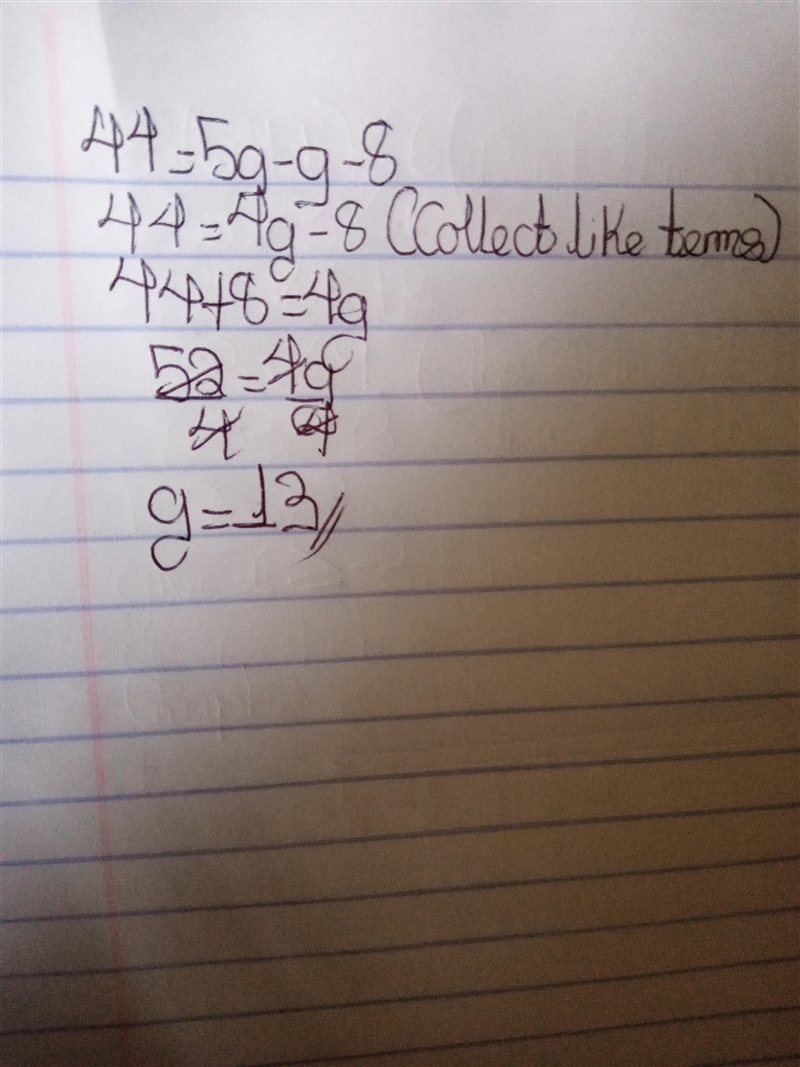 44=5g-g-8
44=4g-8 (Collect like terms)
44+8=4g
52=4g
4 4
g=13//